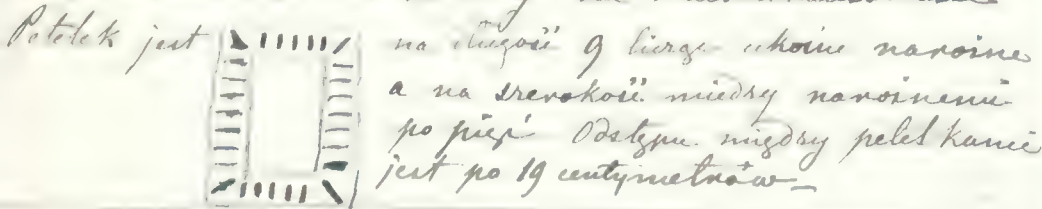 Petelek jest na długość 9 licząc ukośne narożne
a na szerokość między narożnemi
po pięć Odstępu między petelkami
jest po 19 centymetrów –